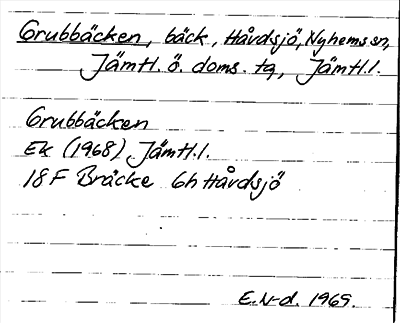 Grubbäcken, bäck, Håvdsjö, Nyhems sn,
Jämtl. ö. doms. tg, Jämtl. l.
Grubbäcken
Ek (1968) Jämtl. l.
18F Bräcke 6h Håvdsjö
E.N-d. 1969.